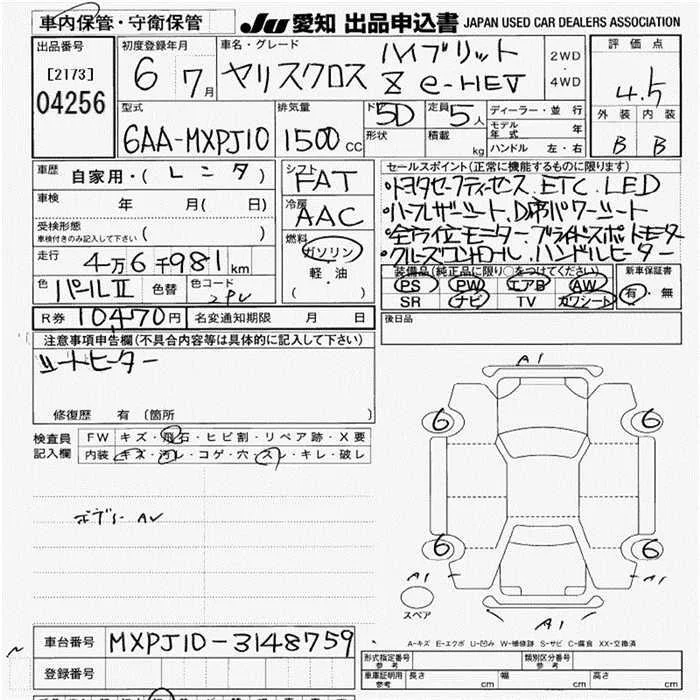 車内保管・守衛保管
JU 愛知 出品申込書 JAPAN USED CAR DEALERS ASSOCIATION
出品番号 [2173] 04256
初度登録年月 6 7月
車名・グレード ヤリスクロス ハイブリット Z e-HEV
2WD・4WD
評価点 4.5
外装 内装
B B
型式 6AA-MXPJ10
排気量 1500 CC
ドア 5D
形状
定員 5人
積載 kg
ディーラー・並行
モデル年式 年
ハンドル 左・右
車歴 自家用・(レンタ)
車検 年 月( 日)
受検形態
車検付きのみ記入して下さい ( )
走行 4万6千981km
色 パールII 色替 色コード 2PU
シフト FAT
冷房 AAC
燃料 ガソリン
軽・油
( )
セールスポイント(正常に機能するものに限ります)
・トヨタセーフティーセンス. ETC. LED
・ハーフレザーシート. D席パワーシート
・全方位モニター. ブラインドスポットモニター
・クルーズコントロール. ハンドルヒーター
装備品(純正品に限り○をつけてください)
PS PW エアB AW
SR ナビ TV カワシート
新車保証書
有・無
R券 10,470円 名変通知期限 月 日
後日品
注意事項申告欄(不具合内容等は具体的に記入して下さい)
シートヒーター
修復歴 有 〔箇所 〕
検査員記入欄
FW キズ・飛石・ヒビ割・リペア跡・X要
内装 キズ・汚レ・コゲ・穴・スレ・キレ・破レ
ボデー AU
A1
6 6
6 6
A1 A1
スペア
A1
A-キズ E-エクボ U-凹み W-補修跡 S-サビ C-腐食 XX-交換済
車台番号 MXPJ10-3148759
登録番号
形式指定番号 参考 類別区分番号 参考
車庫証明用 参考 長さ cm 幅 cm 高さ cm